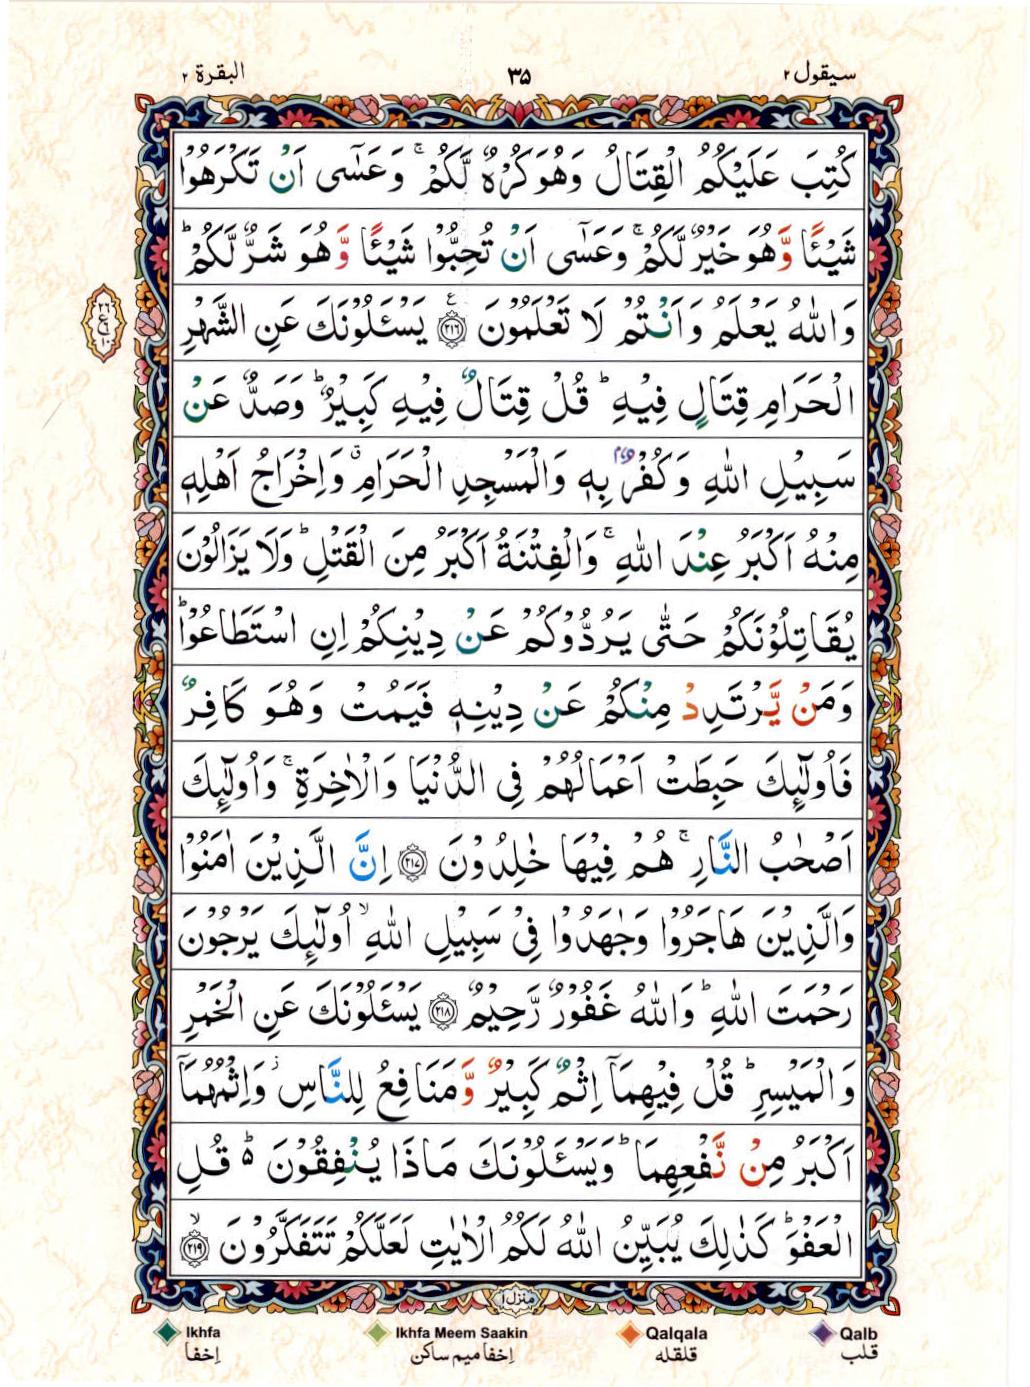 سيقول ٢
٣٥
البقرة ٢
كُتِبَ عَلَيْكُمُ الْقِتَالُ وَهُوَ كُرْهٌ لَّكُمْ ۚ وَعَسٰٓى اَنْ تَكْرَهُوْا
شَيْـًٔا وَّهُوَ خَيْرٌ لَّكُمْ ۚ وَعَسٰٓى اَنْ تُحِبُّوْا شَيْـًٔا وَّهُوَ شَرٌّ لَّكُمْ ؕ
وَاللّٰهُ يَعْلَمُ وَاَنْتُمْ لَا تَعْلَمُوْنَ ﴿٢١٦﴾ ع يَسْـَٔلُوْنَكَ عَنِ الشَّهْرِ
الْحَرَامِ قِتَالٍ فِيْهِ ؕ قُلْ قِتَالٌ فِيْهِ كَبِيْرٌ ؕ وَصَدٌّ عَنْ
سَبِيْلِ اللّٰهِ وَكُفْرٌۢ بِهٖ وَالْمَسْجِدِ الْحَرَامِ ۗ وَاِخْرَاجُ اَهْلِهٖ
مِنْهُ اَكْبَرُ عِنْدَ اللّٰهِ ۚ وَالْفِتْنَةُ اَكْبَرُ مِنَ الْقَتْلِ ؕ وَلَا يَزَالُوْنَ
يُقَاتِلُوْنَكُمْ حَتّٰى يَرُدُّوْكُمْ عَنْ دِيْنِكُمْ اِنِ اسْتَطَاعُوْا ؕ
وَمَنْ يَّرْتَدِدْ مِنْكُمْ عَنْ دِيْنِهٖ فَيَمُتْ وَهُوَ كَافِرٌ
فَاُولٰٓئِكَ حَبِطَتْ اَعْمَالُهُمْ فِى الدُّنْيَا وَالْاٰخِرَةِ ۚ وَاُولٰٓئِكَ
اَصْحٰبُ النَّارِ ۚ هُمْ فِيْهَا خٰلِدُوْنَ ﴿٢١٧﴾ اِنَّ الَّذِيْنَ اٰمَنُوْا
وَالَّذِيْنَ هَاجَرُوْا وَجٰهَدُوْا فِىْ سَبِيْلِ اللّٰهِ ۙ اُولٰٓئِكَ يَرْجُوْنَ
رَحْمَتَ اللّٰهِ ؕ وَاللّٰهُ غَفُوْرٌ رَّحِيْمٌ ﴿٢١٨﴾ يَسْـَٔلُوْنَكَ عَنِ الْخَمْرِ
وَالْمَيْسِرِ ؕ قُلْ فِيْهِمَآ اِثْمٌ كَبِيْرٌ وَّمَنَافِعُ لِلنَّاسِ ؗ وَاِثْمُهُمَآ
اَكْبَرُ مِنْ نَّفْعِهِمَا ؕ وَيَسْـَٔلُوْنَكَ مَاذَا يُنْفِقُوْنَ ؕ۬ قُلِ
الْعَفْوَ ؕ كَذٰلِكَ يُبَيِّنُ اللّٰهُ لَكُمُ الْاٰيٰتِ لَعَلَّكُمْ تَتَفَكَّرُوْنَ ۙ ﴿٢١٩﴾
منزل ١
Ikhfa
إخفا
Ikhfa Meem Saakin
إخفا ميم ساكن
Qalqala
قلقله
Qalb
قلب